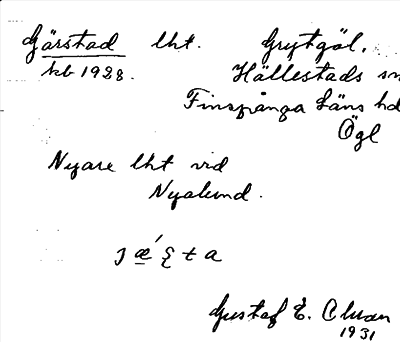 Gärstad lht. Grytgöl,
kb 1928. Hällestads sn
Finspånga Läns hd
Ögl
Nyare lht vid
Nyalund.
Gustaf E. Olsson
1931